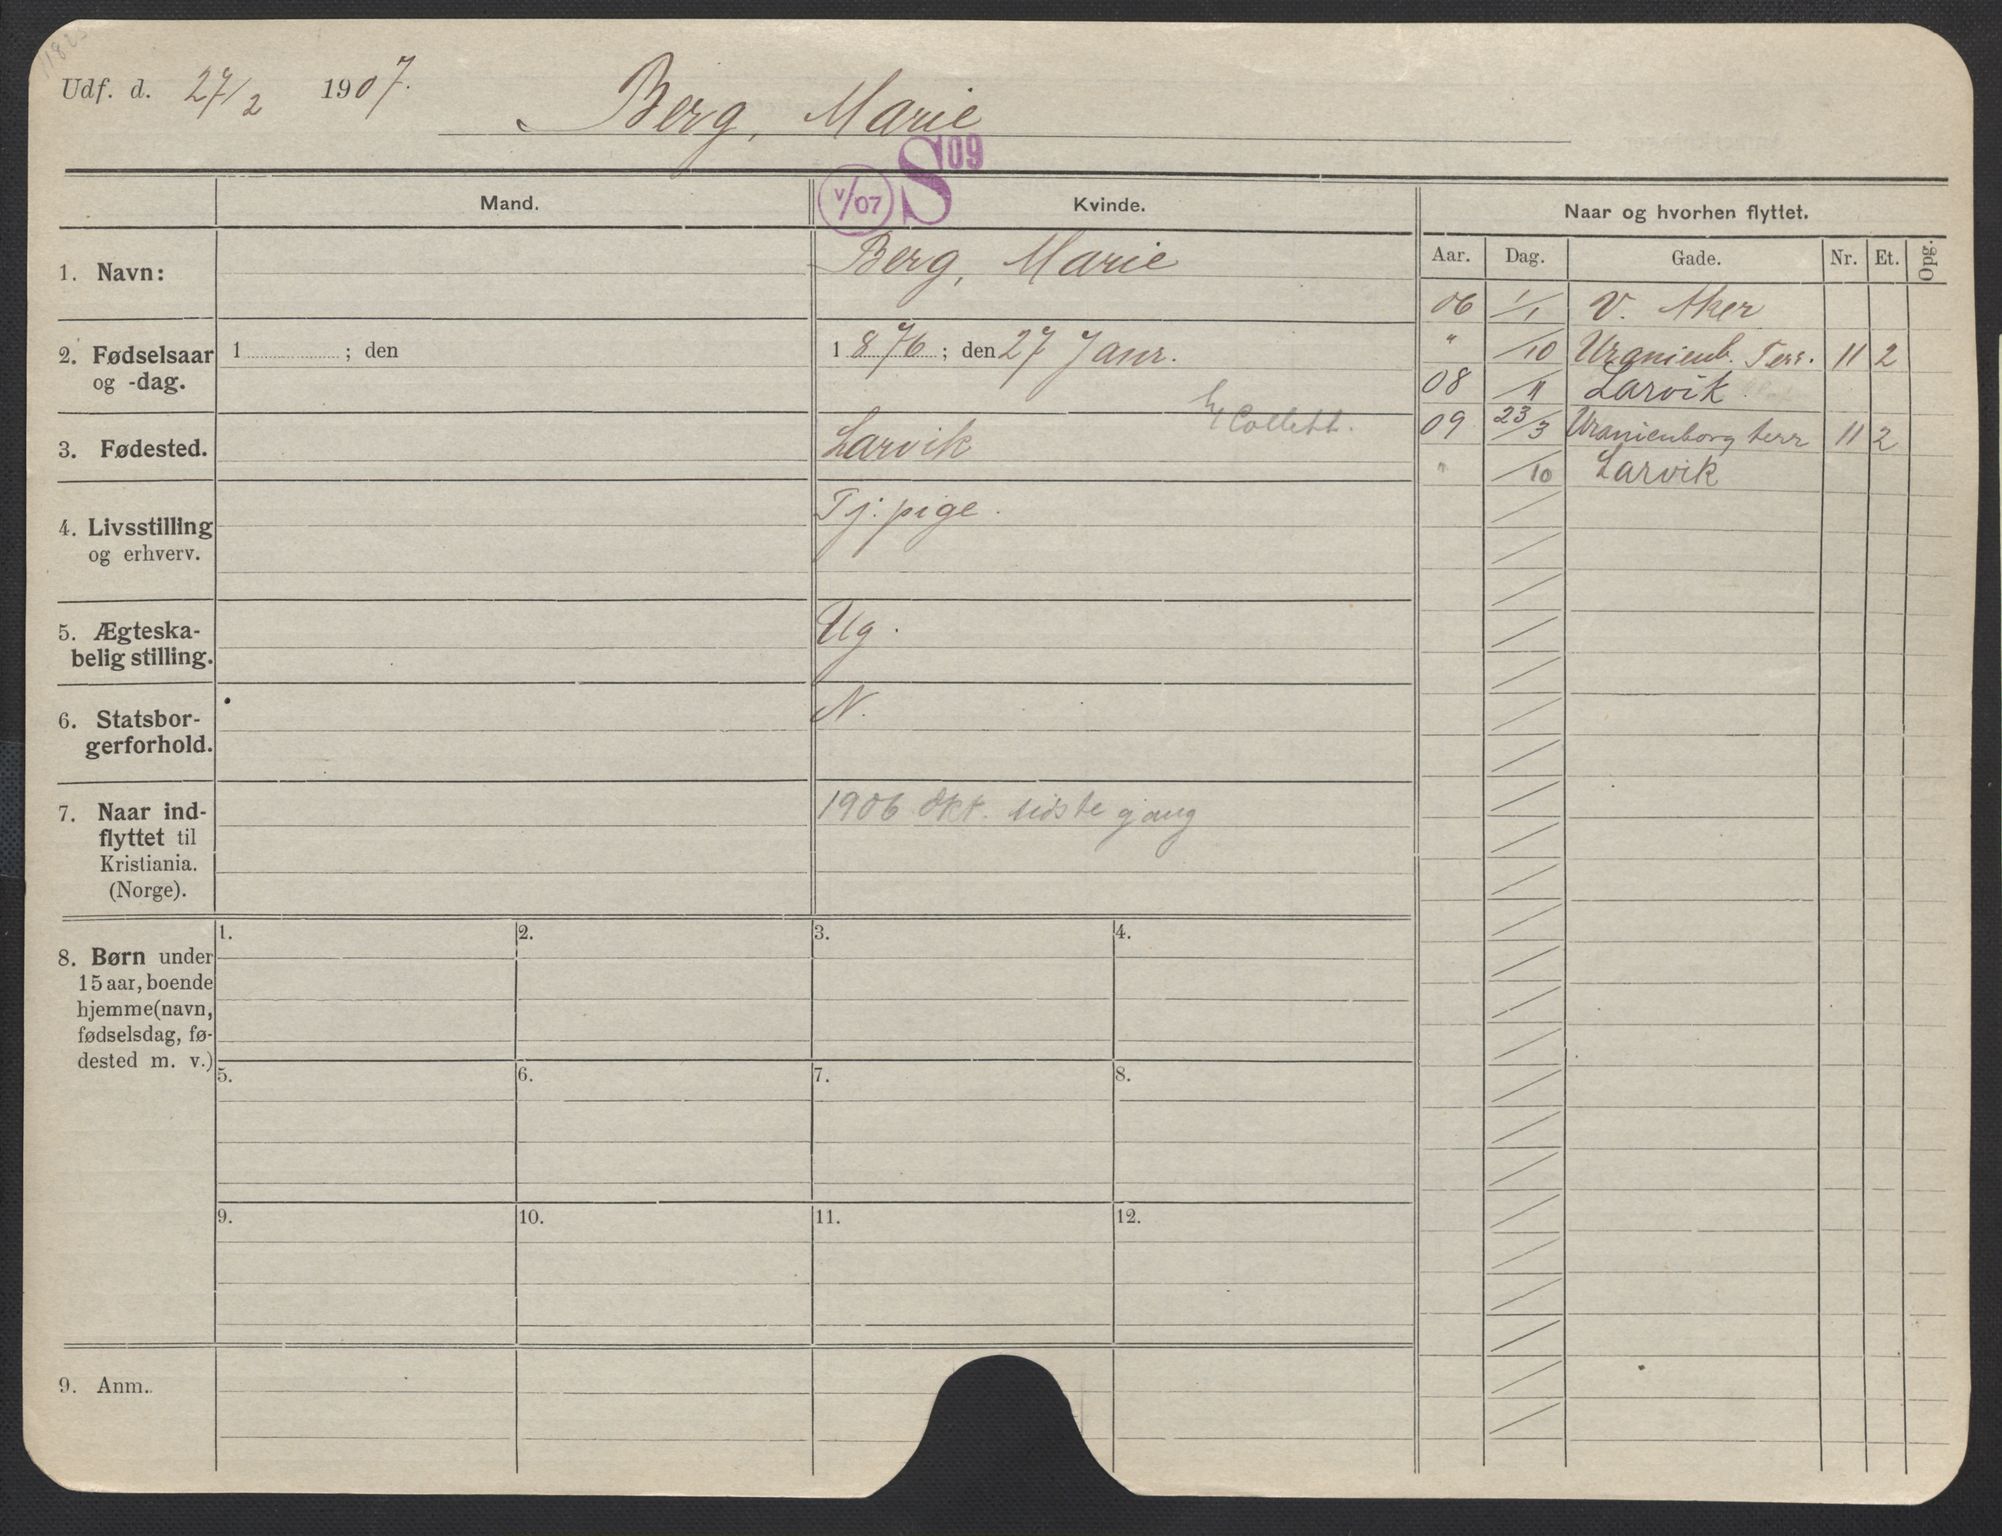 Udf. d. 27/2 1907.
Berg, Marie
V/07 S 09
Mand. Kvinde. Naar og hvorhen flyttet.
Aar. Dag. Gade. Nr. Et. Opg.
1. Navn: Berg, Marie
2. Fødselsaar og -dag. 1 ; den 1 876 ; den 27 Janr.
3. Fødested. Larvik
Collett.
4. Livsstilling og erhverv. Tj. pige.
5. Ægteska-
belig stilling. Ug.
6. Statsbor-
gerforhold. N.
7. Naar ind-
flyttet til
Kristiania.
(Norge).
1906 Okt. sidste gang
8. Børn under
15 aar, boende
hjemme (navn,
fødselsdag, fø-
dested m. v.)
1. 2. 3. 4.
5. 6. 7. 8.
9. 10. 11. 12.
9. Anm.
06 1/1 V. Aker
" /10 Uranienb. Terr. 11 2
08 /11 Larvik
09 23/3 Uranienborg terr 11 2
" /10 Larvik